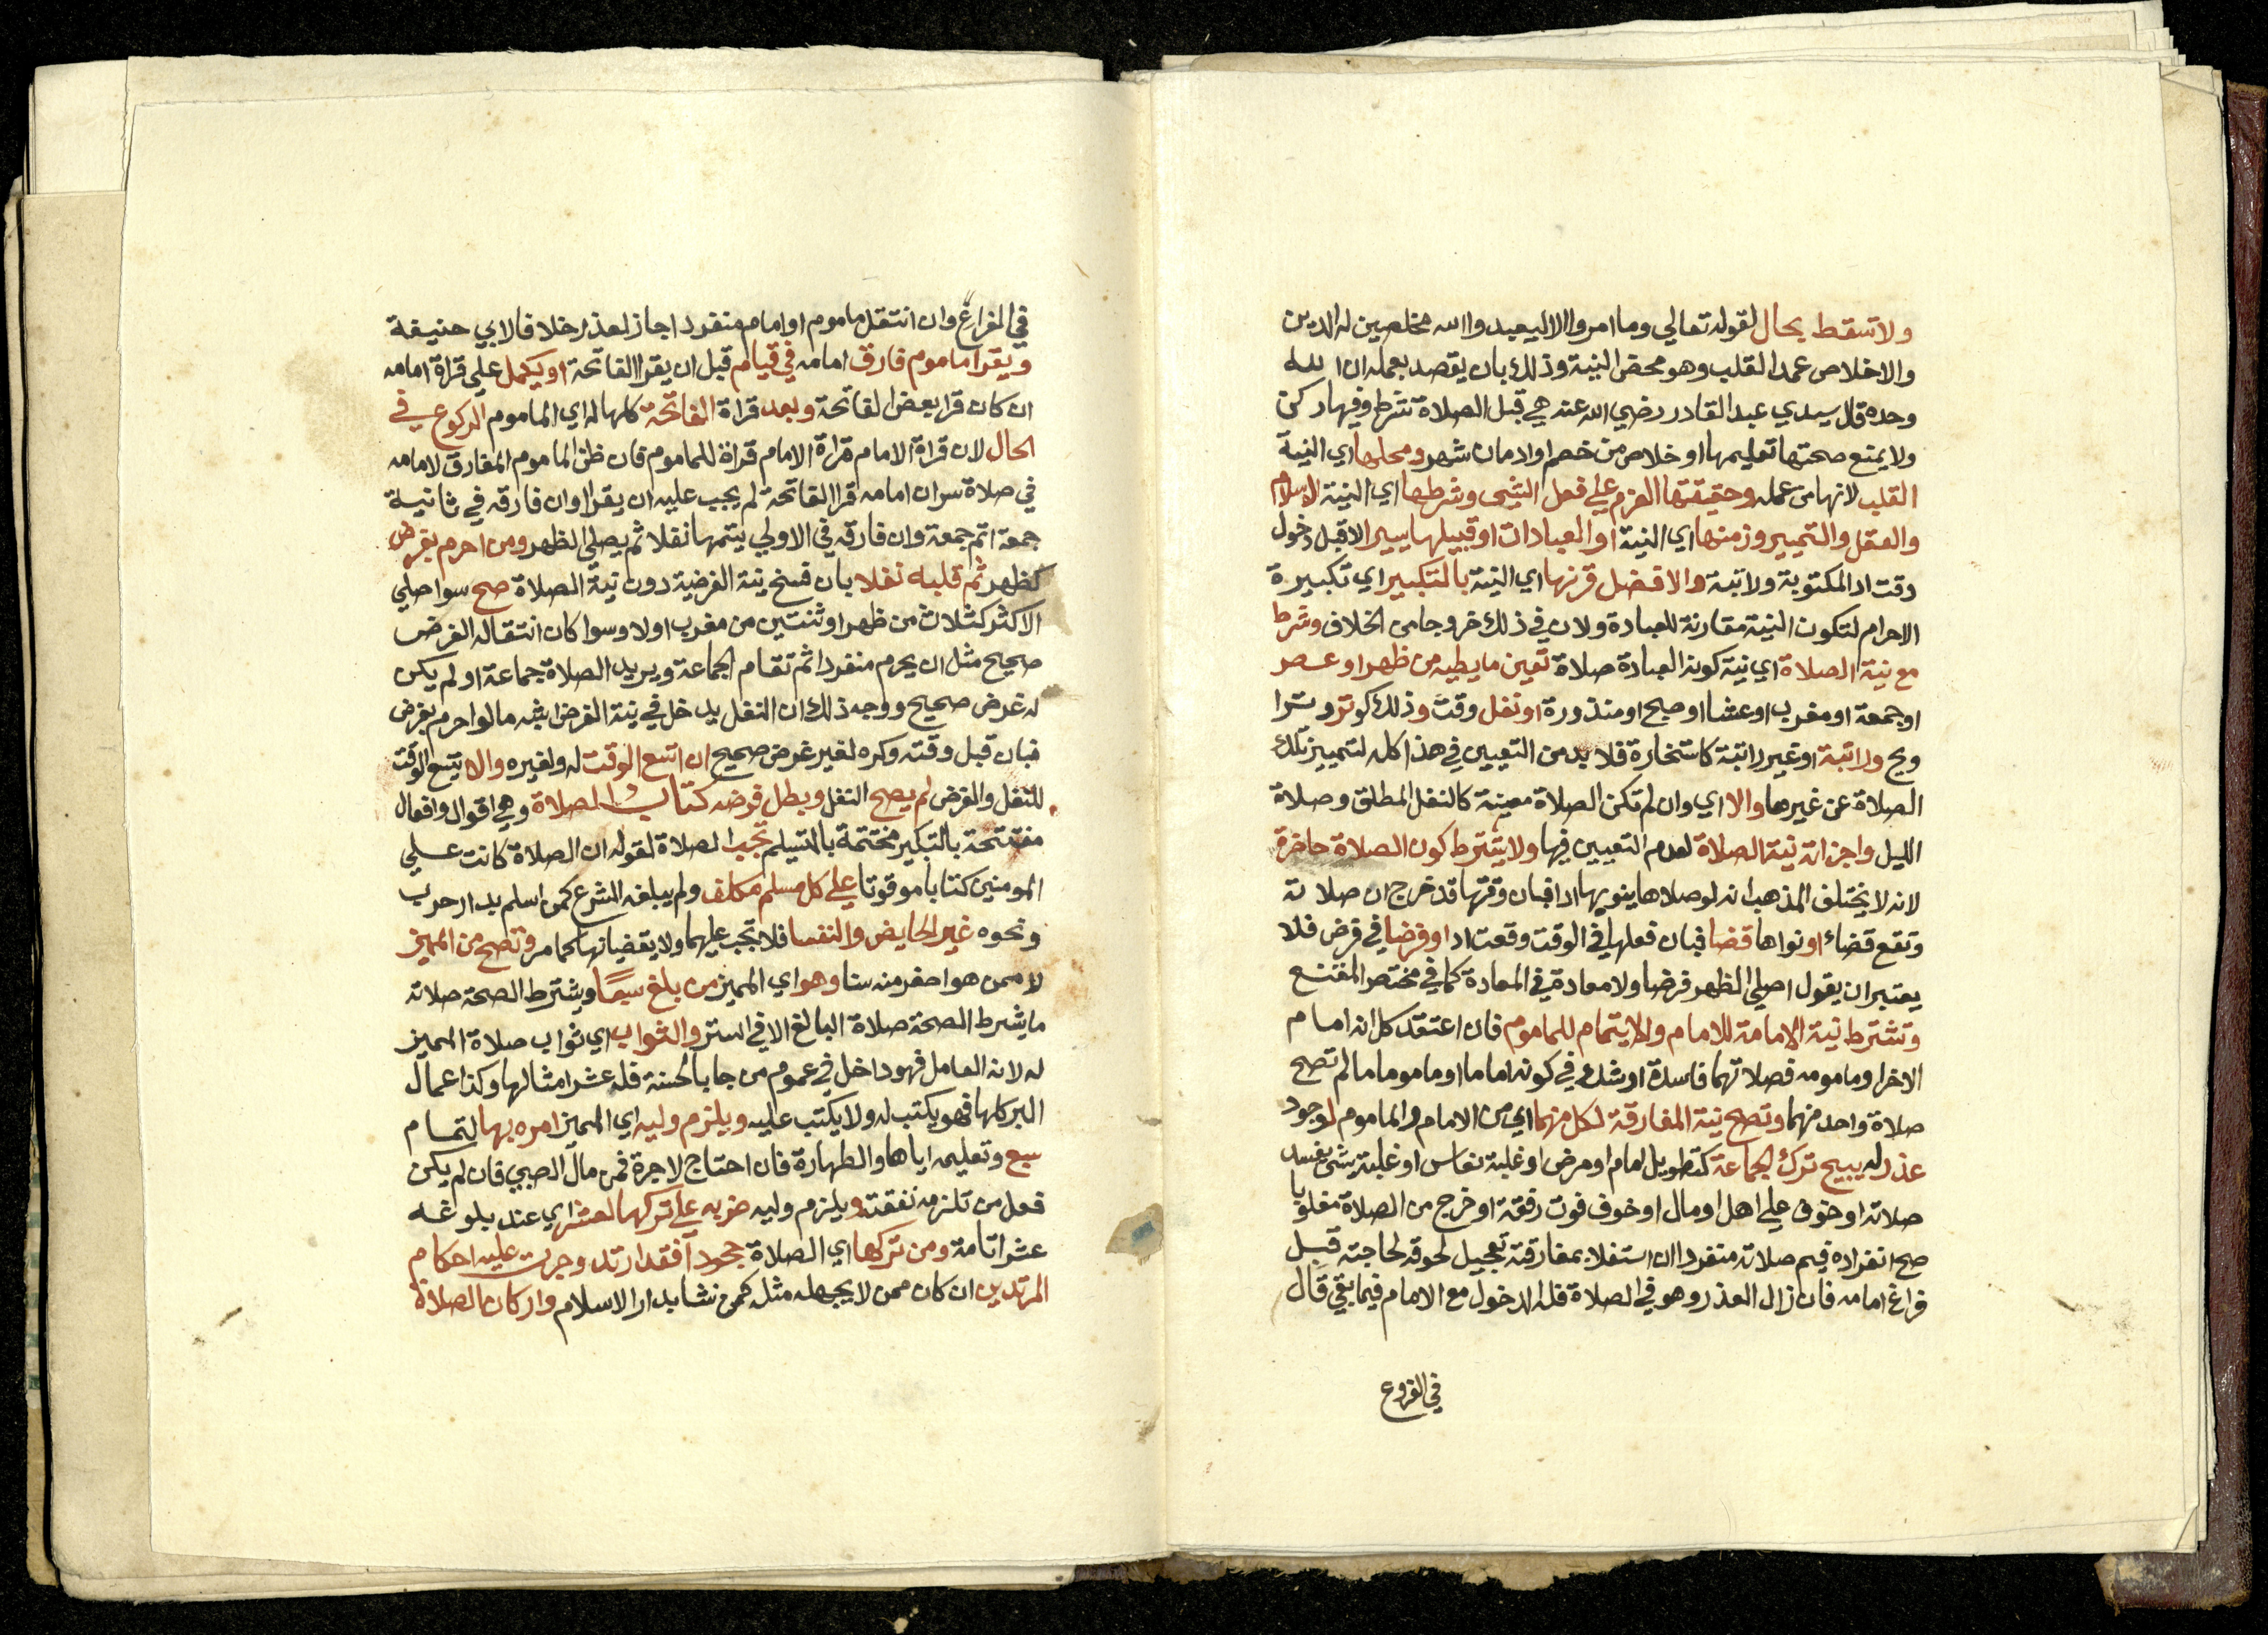 ولا تسقط بحال لقوله تعالي وما امروا الا ليعبدوا الله مخلصين له الدين
والاخلاص عمد القلب وهو محض النية وذلك بان يقصد بعمله ان الله
وحده قال سيدي عبد القادر رضي الله عنه هي قبل الصلاة شرط وفيها ركن
ولا يمنع صحتها تعليمها او خلاص من خصم او ادمان شهر ومحلها اي النية
القلب لانها من عمله وحقيقتها العزم علي فعل الشي وشرطها اي النية الاسلام
والعقل والتمييز وزمنها اي النية اول العبادات او قبيلها يسير الا قبل دخول
وقت ادا المكتوبة وراتبة والافضل قرنها اي النية بالتكبير اي تكبيرة
الاحرام لتكون النية مقارنة للعبادة ولان في ذلك خروجا من الخلاف وشرط
مع نية الصلاة اي نية كون العبادة صلاة تعين ما يصليه من ظهر او عصر
او جمعة او مغرب او عشا او صبح او منذورة او نفل وقت وذلك كوتر وترا
ويح وراتبة او غير راتبة كاستخارة فلا بد من التعيين في هذا كله لتمييز تلك
الصلاة عن غيرها والا اي وان لم تكن الصلاة معينة كالنفل المطلق وصلاة
الليل واجزاته نية الصلاة لعدم التعيين فيها ولا يشترط كون الصلاة حاضرة
لانه لا يختلف المذهب انه لو صلاها ينويها ادا فبان وقتها قد خرج ان صلاته
وتقع قضاء او نواها قضا فبان فعلها في الوقت وقعت ادا وفرضا في فرض فلا
يعتبر ان يقول اصلي الظهر فرضا ولا معادة في المعادة كما في مختصر المقنع
وتشترط نية الامامة للامام والايتمام للماموم فان اعتقد كل انه امام
الاخر او مامومه فصلاتهما فاسدة او شك في كونه اماما او ماموما لم تصح
صلاة واحد منهما وتصح نية المفارقة لكل منهما اي من الامام والماموم لوجود
عذر له يبيح ترك الجماعة كتطويل امام او مرض او غلبة نعاس او غلبة شي يفسد
صلاته او خوف علي اهل او مال او خوف فوت رفقة او خرج من الصلاة مغلوبا
صح انفراده فيتم صلاته منفردا ان استفاد بمفارقته تعجيل لحوقه لحاجته قبل
فراغ امامه فان زال العذر وهو في الصلاة فله الدخول مع الامام فيما بقي قال
في الفروع
في الفراغ وان انتقل ماموم او امام منفردا جاز لعذر خلافا لابي حنيفة
ويقرا ماموم فارق امامه في قيام قبل ان يقرا الفاتحة او يكمل علي قراة امامه
ان كان قرا بعض الفاتحة وبعد قراة الفاتحة كلها له اي الماموم الركوع في
الحال لان قراة الامام قراة الامام قراة للماموم فان ظن الماموم المفارق لامامه
في صلاة سر ان امامه قرا الفاتحة لم يجب عليه ان يقرا وان فارقه في ثانية
جمعة اتم جمعة وان فارقه في الاولي يتمها نفلا ثم يصلي الظهر ومن احرم بفرض
كظهر ثم قلبه نفلا بان فسخ نية الفرضية دون نية الصلاة صح سوا صلي
الاكثر كثلاث من ظهر او ثنتين من مغرب اولا وسوا كان انتقاله لغرض
صحيح مثل ان يحرم منفردا ثم تقام الجماعة ويريد الصلاة جماعة او لم يكن
له غرض صحيح ووجه ذلك ان النفل يدخل في نية الفرض اشبه ما لو احرم بفرض
فبان قبل وقته وكره لغير غرض صحيح ان اتسع الوقت له ولغيره والا يتسع الوقت
للنفل والفرض لم يصح النفل وبطل فرضه كتاب الصلاة وهي اقوال وافعال
مفتتحة بالتكبير مختتمة بالتسليم تجب الصلاة لقوله ان الصلاة كانت علي
المومنين كتابا موقوتا علي كل مسلم مكلف ولم يبلغه الشرع كمن اسلم بدار حرب
ونحوه غير الحايض والنفسا فلا تجب عليهما ولا يقضيانها كما مر وتصح من المميز
لا ممن هو اصغر منه سنا وهو اي المميز من بلغ سبعا ويشترط لصحة صلاته
ما شرط لصحة صلاة البالغ الا في الستر والثواب اي ثواب صلاة المميز
له لانه العامل فهو داخل في عموم من جا بالحسنة فله عشر امثالها وكذا اعمال
البر كلها فهو يكتب له ولا يكتب عليه ويلزم وليه اي المميز امره بها لتمام
سبع وتعليمه اياها والطهارة فان احتاج لاجرة فمن مال الصبي فان لم يكن
فعلي من تلزمه نفقته ويلزم وليه ضربه علي تركها لعشر اي عند بلوغه
عشرا تامة ومن تركها اي الصلاة جحودا فقد ارتد وجرت عليه احكام
المرتدين ان كان ممن لا يجهله مثله كمن نشا بدار الاسلام واركان الصلاة